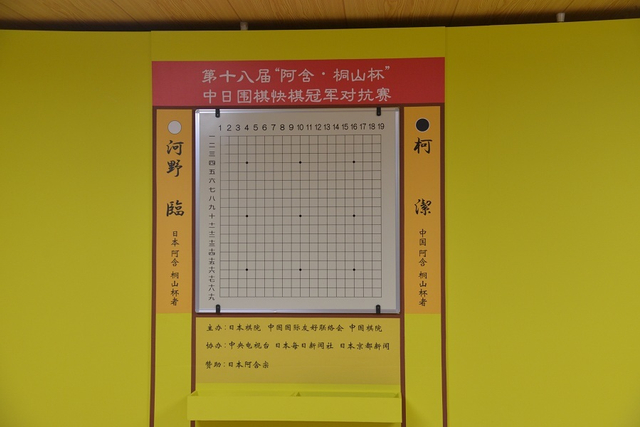 第十八届“阿含·桐山杯”
中日围棋快棋冠军对抗赛
河野 臨
日本 阿含 桐山杯者
1 2 3 4 5 6 7 8 9 10 11 12 13 14 15 16 17 18 19
一
二
三
四
五
六
七
八
九
十
十一
十二
十三
十四
十五
十六
十七
十八
十九
柯 潔
中国 阿含 桐山杯者
主办:日本棋院 中国国际友好联络会 中国棋院
协办:中央电视台 日本每日新闻社 日本京都新闻
赞助:日本阿含宗